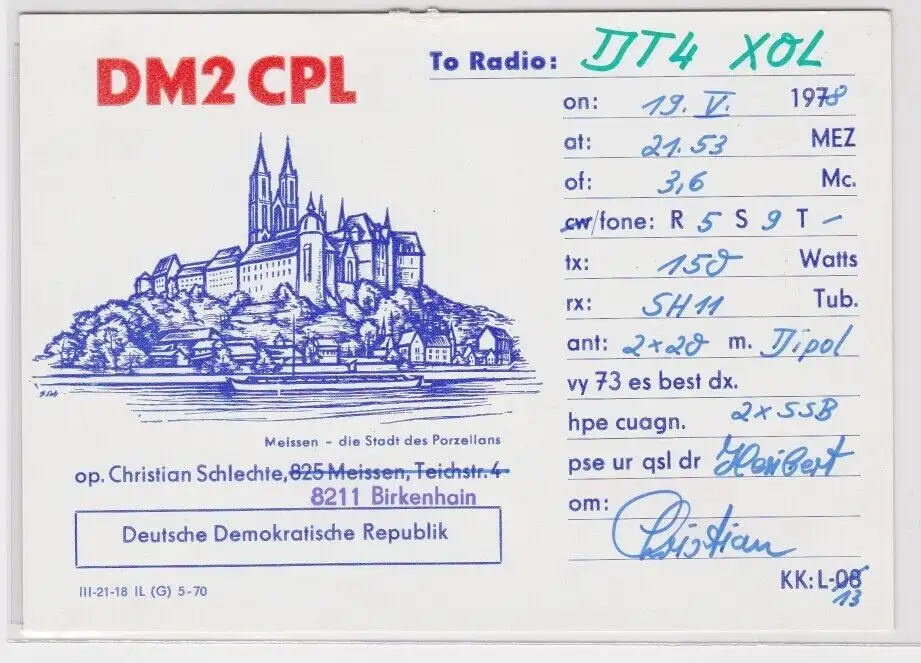 DM2 CPL
To Radio: DT4 XOL
on: 19. V. 1978
at: 21.53 MEZ
of: 3,6 Mc.
cw/fone: R 5 S 9 T -
tx: 150 Watts
rx: SH11 Tub.
ant: 2x20 m. Dipol
vy 73 es best dx.
hpe cuagn. 2x SSB
pse ur qsl dr Heribert
om: Christian
KK: L-08
13
Meissen - die Stadt des Porzellans
op. Christian Schlechte, 825 Meissen, Teichstr. 4
8211 Birkenhain
Deutsche Demokratische Republik
III-21-18 IL (G) 5-70